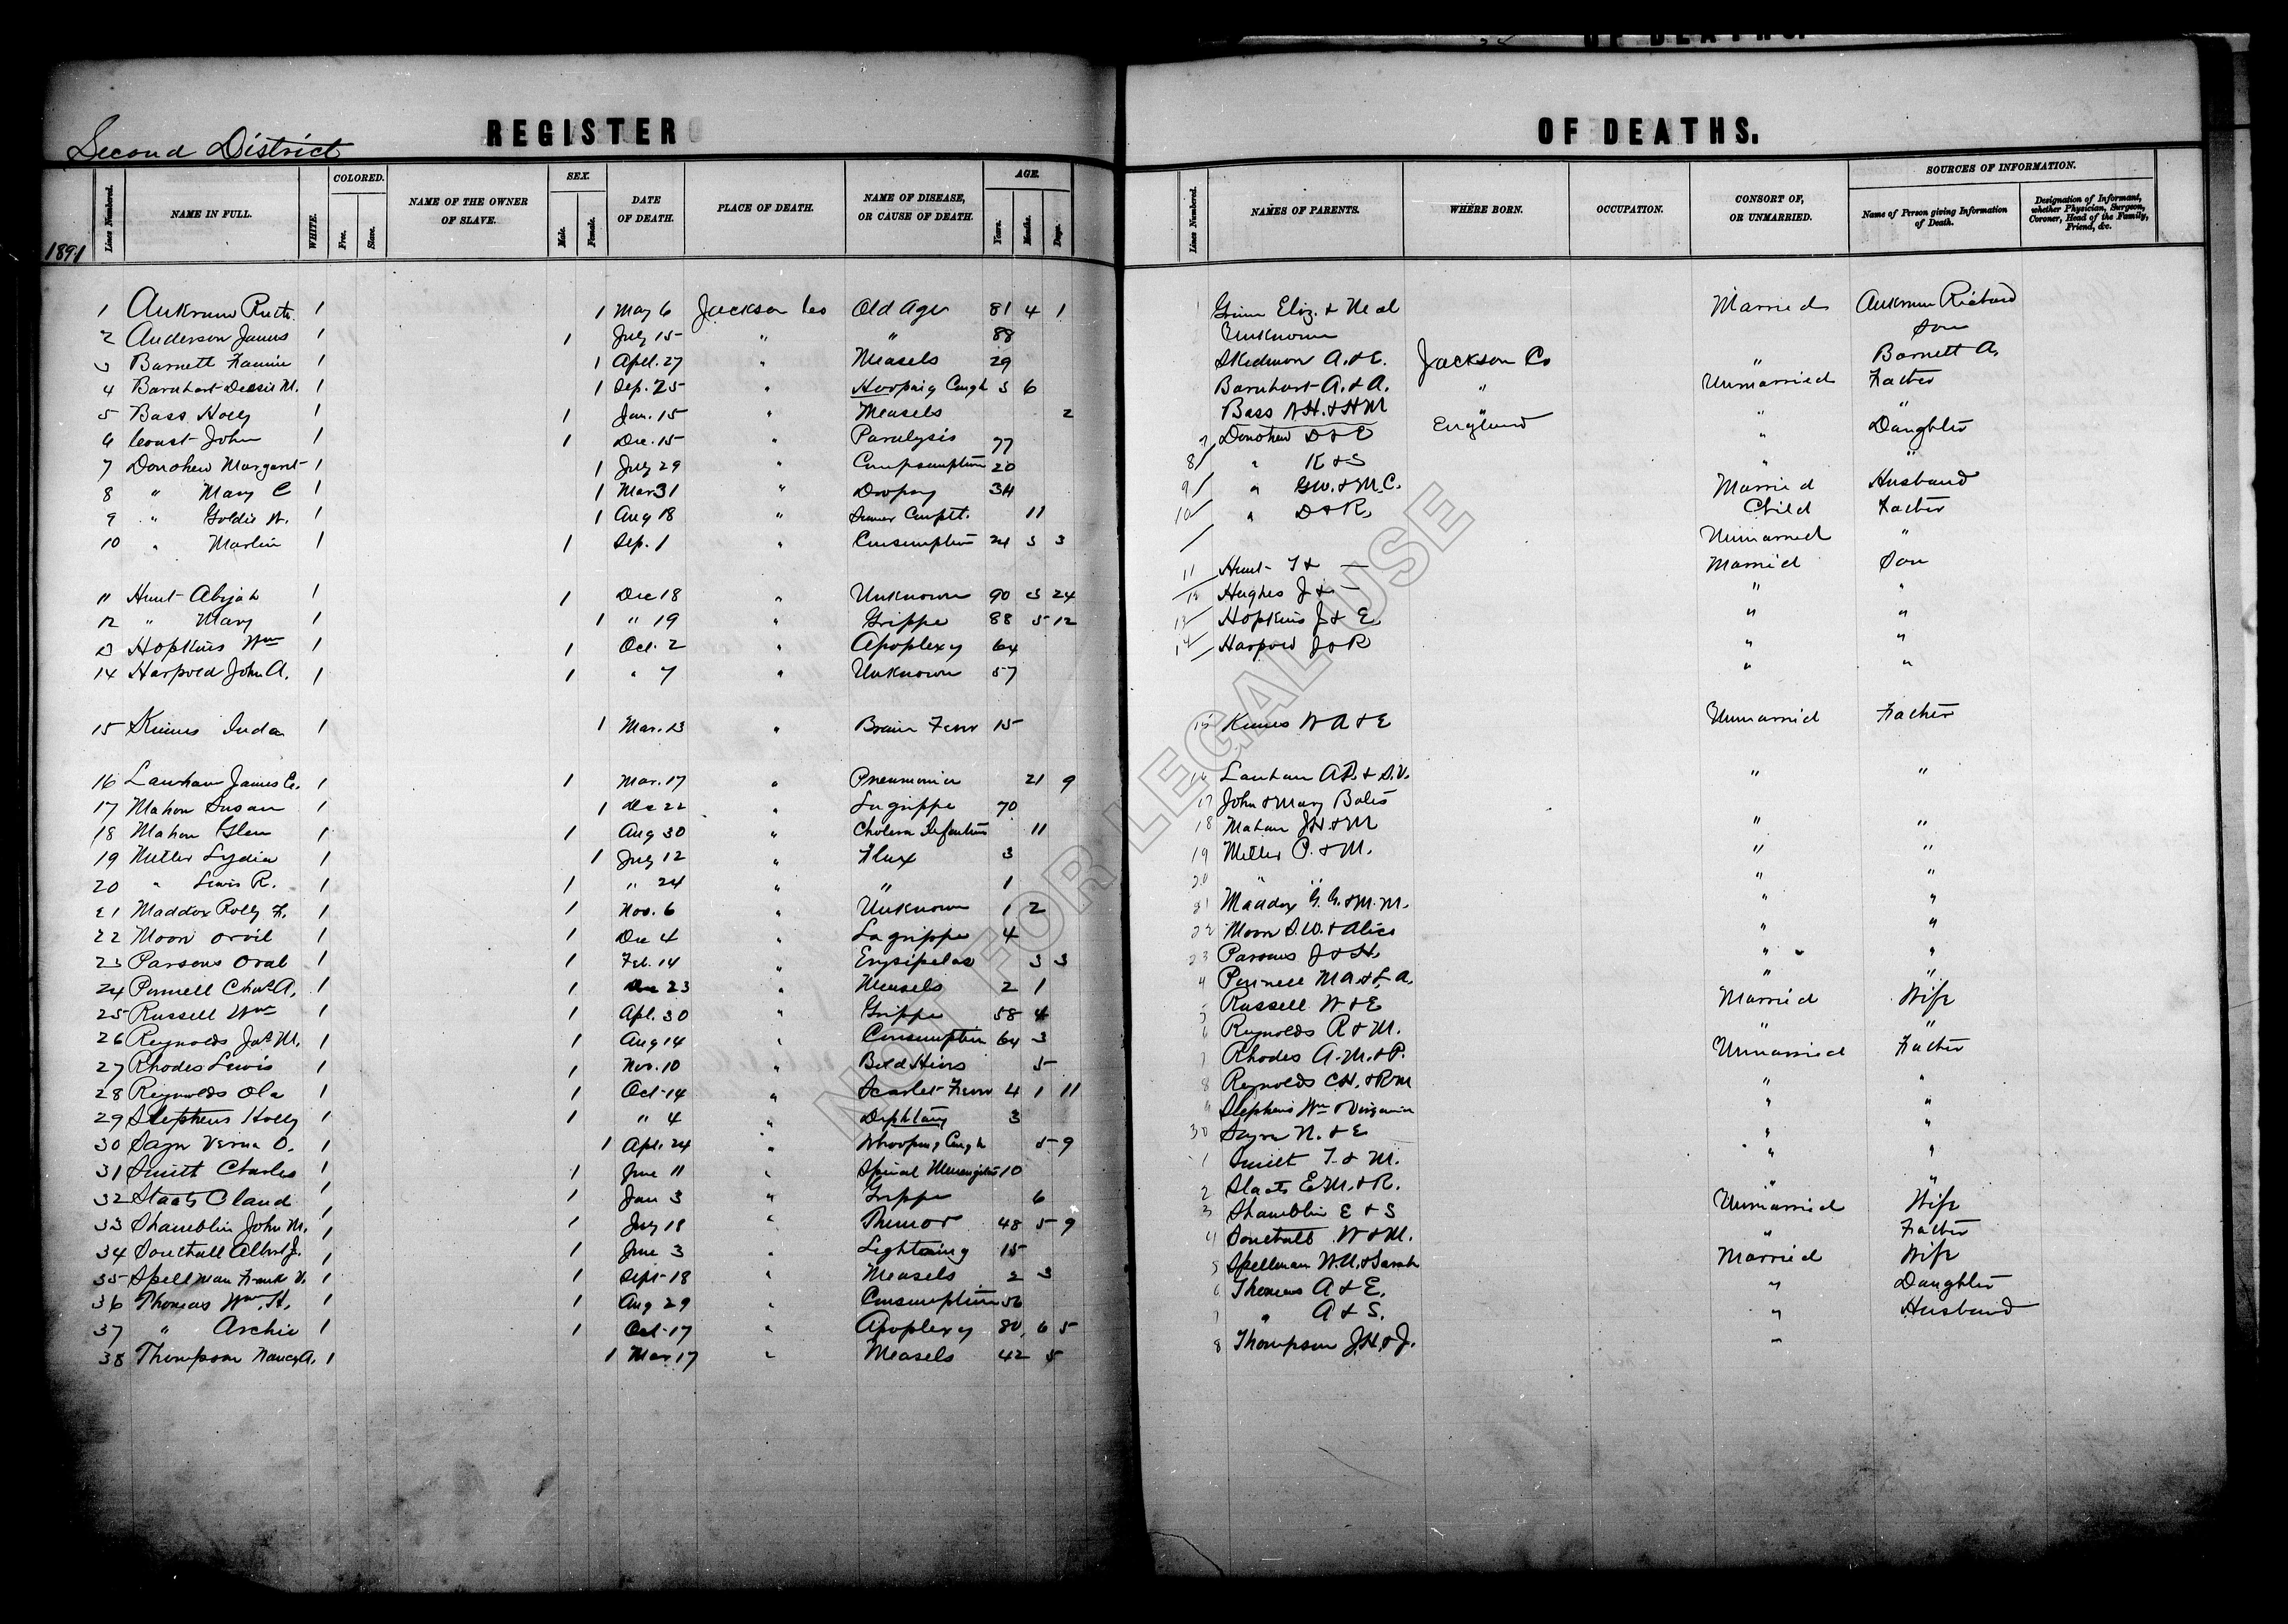 OF DEATHS.
REGISTER
Second District
Lines Numbered. NAME IN FULL. WHITE. COLORED. Free. Slave. NAME OF THE OWNER OF SLAVE. SEX. Male. Female. DATE OF DEATH. PLACE OF DEATH. NAME OF DISEASE, OR CAUSE OF DEATH. AGE. Years. Months. Days.
1891
1 Aukrum Ruth 1 1 May 6 Jackson Co Old Age 81 4 1
2 Anderson James 1 1 July 15 " " 88
3 Barnett Fannie 1 1 Apll. 27 " Measels 29
4 Barnhart Dessie M. 1 1 Sep. 25 " Hooping Cough 3 6
5 Bass Holly 1 1 Jan. 15 " Measels 2
6 Coast John 1 1 Dec. 15 " Paralysis 77
7 Donohew Margaret 1 1 July 29 " Compsumption 20
8 " Mary C 1 1 Mar 31 " Dropsy 34
9 " Goldie 1 1 Aug 18 " 11
10 " Marlin 1 1 Sep. 1 " Consumption 24 3 3
11 Hunt Abijah 1 1 Dec 18 " Unknown 90 3 24
12 " Mary 1 1 " 19 " Grippe 88 5 12
13 Hopkins Wm 1 1 Oct. 2 " Apoplexy 64
14 Harpold John A. 1 1 " 7 " Unknown 57
15 Inda 1 1 Mar. 13 " Brain Fever 15
16 Lanham James C. 1 1 Mar. 17 " Pneumonia 21 9
17 Mahon Susan 1 1 Dec 22 " Lagrippe 70
18 Mahon Glen 1 1 Aug 30 " Cholera Infantum 11
19 Lydia 1 1 July 12 " Flux 3
20 " Lewis R. 1 1 " 24 " " 1
21 Maddox Rolly F. 1 1 Nov. 6 " Unknown 1 2
22 Moon Orvil 1 1 Dec 4 " Lagrippe 4
23 Parsons Oral 1 1 Feb. 14 " Erysipelas 3 3
24 Pannell Chas A. 1 1 Dec 23 " Measels 2 1
25 Russell Wm 1 1 Apl. 30 " Grippe 58 4
26 Reynolds Jas M. 1 1 Aug 14 " Consumption 64 3
27 Rhodes Lewis 1 1 Nov. 10 " Bold Hives 5
28 Reynolds Ola 1 1 Oct 14 " Scarlet Fever 4 1 11
29 Stephens Holly 1 1 " 4 " 3
30 Sayre Verna O. 1 1 Apl. 24 " Whooping Cough 5 9
31 Smith Charles 1 1 June 11 " Spinal Menengites 10
32 Staats Claud 1 1 Jan 3 " Grippe 6
33 Shamblin John M. 1 1 July 18 " 48 5 9
34 Southall Albert J. 1 1 June 3 " Lightning 15
35 Spellman Frank V. 1 1 Sept 18 " Measels 2 3
36 Thomas Wm. H. 1 1 Aug 29 " Consumption 56
37 " Archie 1 1 Oct 17 " Apoplexy 80 6 5
38 Thompson Nancy A. 1 1 Mar 17 " Measels 42 5
OF DEATHS.
Lines Numbered. NAMES OF PARENTS. WHERE BORN. OCCUPATION. CONSORT OF, OR UNMARRIED. SOURCES OF INFORMATION. Name of Person giving Information of Death. Designation of Informant, whether Physician, Surgeon, Coroner, Head of the Family, Friend, &c.
1 Eliz. & Neal Married Aukrum Richard
Unknown Son
Skidmore A. & E. Jackson Co " Barnett A.
Barnhart A. & A. " Unmarried Father
Bass & H M " " "
7 Donohew D & C England " Daughter
8 " K & S " "
9 " G.W. & M.C. Married Husband
10 " D & R. Child Father
Unmarried "
11 Hunt T & — Married Son
12 Hughes J & — " "
13 Hopkins J & E " "
14 Harpold J & R " "
" "
15 W A & E Unmarried Father
16 Lanham A.P. & S.V. " "
17 John & Mary Bates
18 Mahan J.H. & M " "
19 P. & M. " "
20 " " " "
21 Maddox G. G. & M. M. " "
22 Moon S.W. & Alice " "
23 Parsons J & H. " "
4 M A & L. A. " "
5 Russell W & E Married Wife
6 Reynolds R & M. " "
7 Rhodes A. M. & P. Unmarried Father
8 Reynolds C.H. & R M " "
9 Stephens Wm & Virginia " "
30 Sayre N. & E " "
1 Smith T. & M. " "
2 Staats E M. & R. " "
3 Shamblin E & S Unmarried Wife
4 Southall W & M. " Father
5 Spellman W.U. & Sarah Married Wife
6 Thomas A & E. " Daughter
7 " A & S. " Husband
8 Thompson J.H. & J. "
NOT FOR LEGAL USE